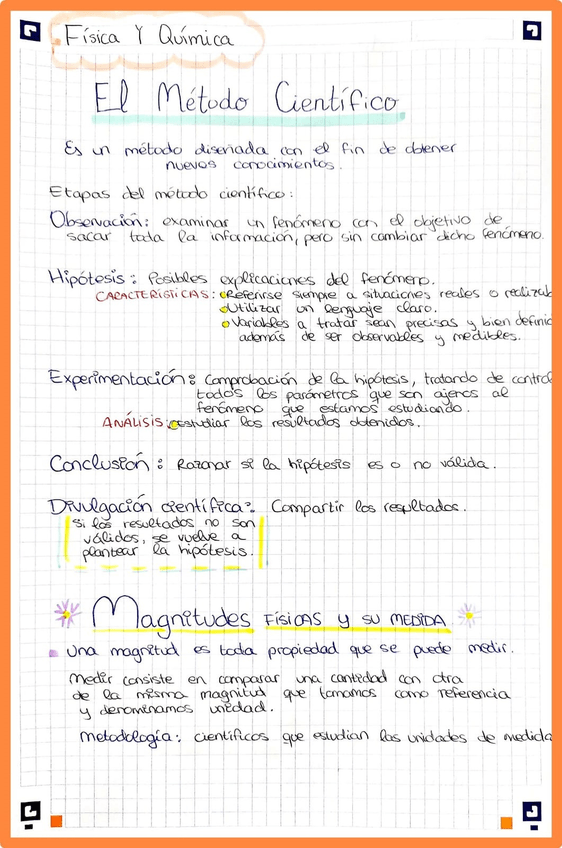 Física Y Química
El Método Científico
Es un método diseñada con el fin de obtener
nuevos conocimientos.
Etapas del método científico:
Observación: examinar un fenómeno con el objetivo de
sacar toda la información, pero sin cambiar dicho fenómeno.
Hipótesis: Posibles explicaciones del fenómeno.
CARACTERÍSTICAS: Referirse siempre a situaciones reales o realizab
Utilizar un lenguaje claro.
Variables a tratar sean precisas y bien definid
además de ser observables y medibles.
Experimentación: Comprobación de la hipótesis, tratando de control
todos los parámetros que son ajenos al
fenómeno que estamos estudiando.
ANÁLISIS: estudiar los resultados obtenidos.
Conclusión: Razonar si la hipótesis es o no válida.
Divulgación científica: Compartir los resultados.
Si los resultados no son
válidos, se vuelve a
plantear la hipótesis.
Magnitudes FÍSICAS Y SU MEDIDA
Una magnitud es toda propiedad que se puede medir.
Medir consiste en comparar una cantidad con otra
de la misma magnitud que tomamos como referencia
y denominamos unidad.
Metodología: científicos que estudian las unidades de medida